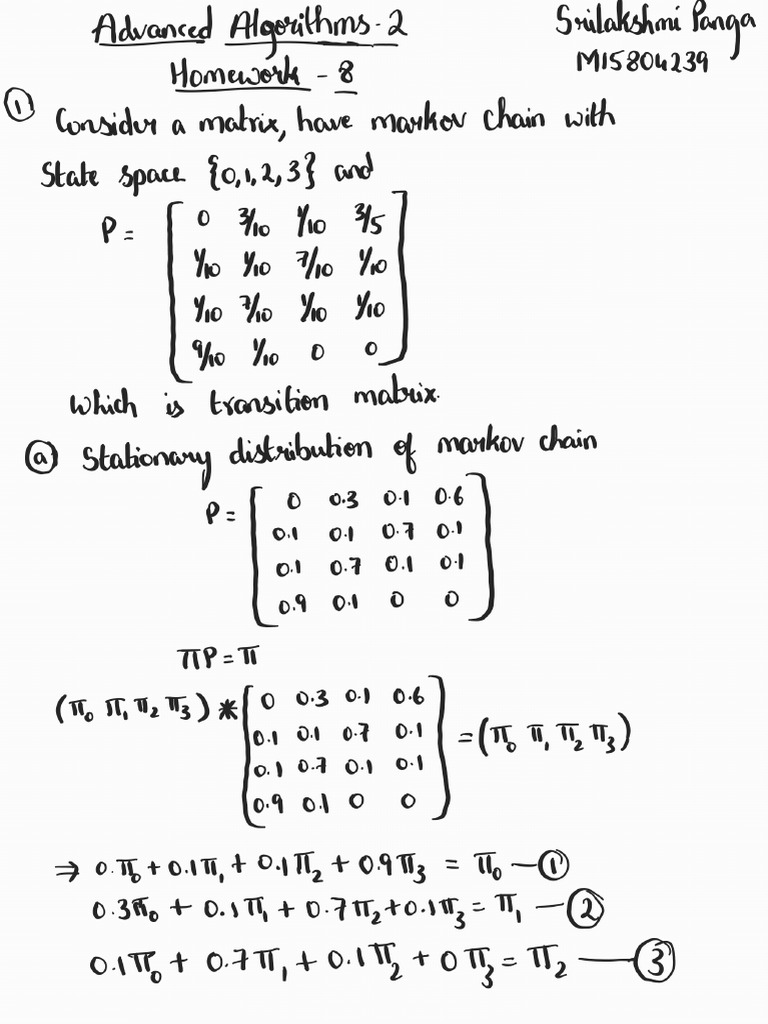 Advanced Algorithms-2
Srilakshmi Panga
Homework - 8
M15804239
① Consider a matrix, have markov chain with
State space {0,1,2,3} and
P = [ 0 3/10 1/10 3/5
1/10 1/10 7/10 1/10
1/10 7/10 1/10 1/10
9/10 1/10 0 0 ]
which is transition matrix.
ⓐ Stationary distribution of markov chain
P = [ 0 0.3 0.1 0.6
0.1 0.1 0.7 0.1
0.1 0.7 0.1 0.1
0.9 0.1 0 0 ]
πP = π
(π₀ π₁ π₂ π₃) * [ 0 0.3 0.1 0.6
0.1 0.1 0.7 0.1
0.1 0.7 0.1 0.1
0.9 0.1 0 0 ] = (π₀ π₁ π₂ π₃)
⇒ 0.π₀ + 0.1π₁ + 0.1π₂ + 0.9π₃ = π₀ — ①
0.3π₀ + 0.1π₁ + 0.7π₂ + 0.1π₃ = π₁ — ②
0.1π₀ + 0.7π₁ + 0.1π₂ + 0π₃ = π₂ — ③